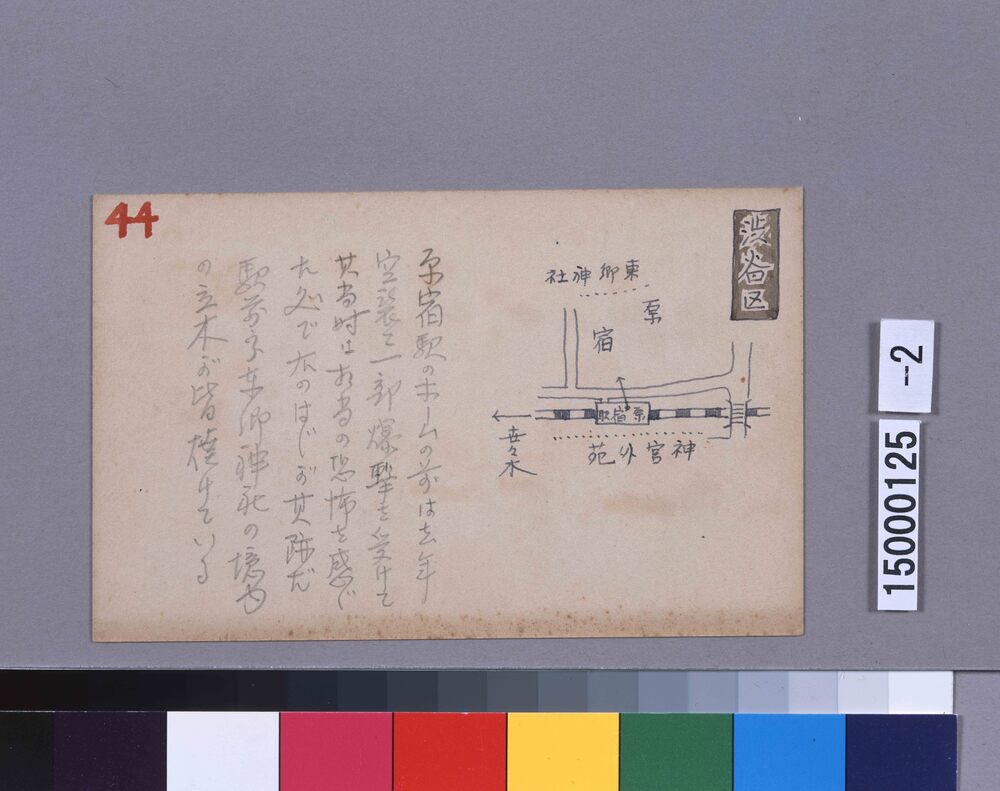 44
渋谷区
東郷神社
原
宿
原宿駅
代々木
神宮外苑
原宿駅のホームの前は去年
空襲で一部爆撃を受けて
其当時は相当の恐怖を感じ
た処で右のはじが其跡だ
駅前の東郷神社の境内
の立木が皆焼けている
-2
15000125